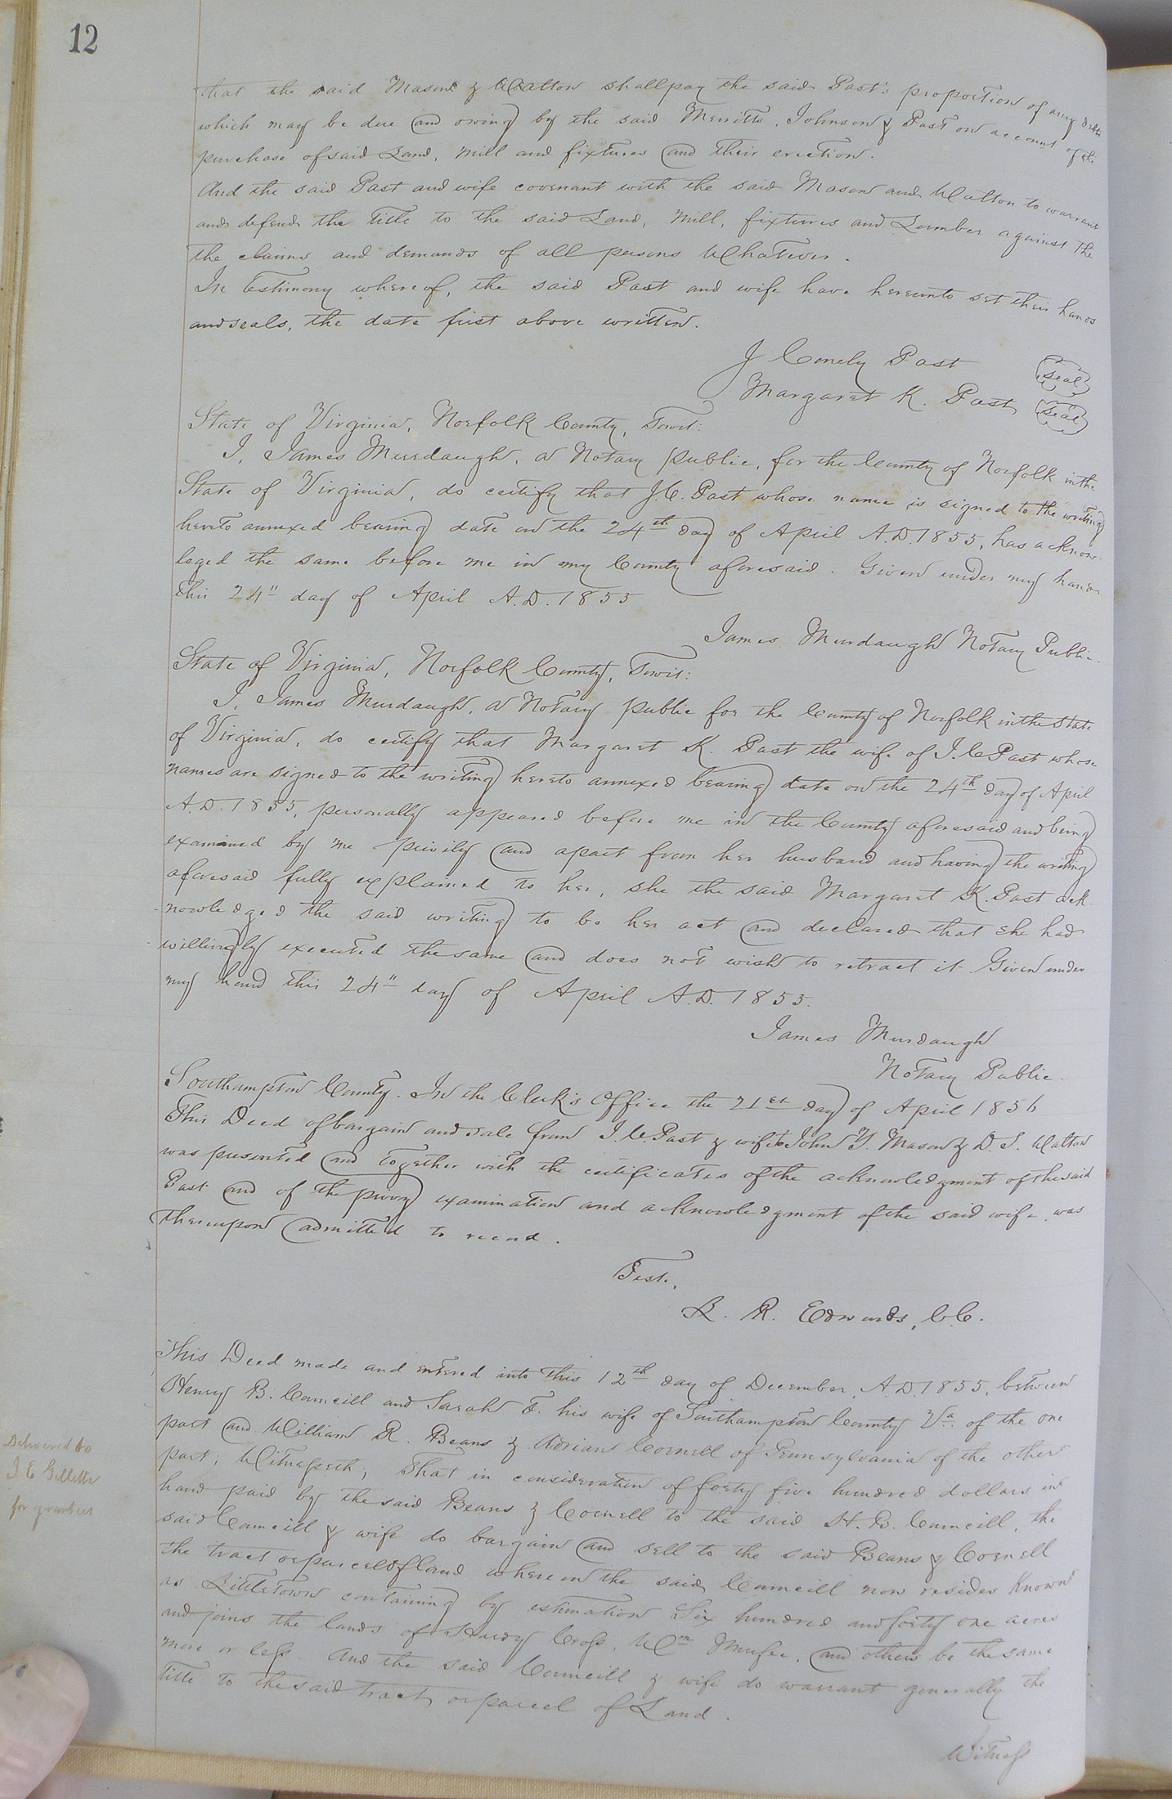 12
that the said Mason & Walton shall pay the said Past's proportion of any debts
which may be due and owing by the said Merritts, Johnson & Past on account of the
purchase of said Land, Mill and fixtures and their erection.
And the said Past and wife covenant with the said Mason and Walton to warrant
and defend the Title to the said Land, Mill, fixtures and Lumber against the
the claims and demands of all persons Whatever.
In Testimony whereof, the said Past and wife have hereunto set their hands
and seals, the date first above written.
J Conely Past (seal)
Margaret K. Past (seal)
State of Virginia, Norfolk County, Towit:
I, James Murdaugh, a Notary Public, for the County of Norfolk in the
State of Virginia, do certify that J. C. Past whose name is signed to the writing
hereto annexed bearing date on the 24th day of April A.D. 1855, has acknow-
leged the same before me in my County aforesaid. Given under my hand
this 24" day of April A.D. 1855
James Murdaugh Notary Public
State of Virginia, Norfolk County, Towit:
I, James Murdaugh, a Notary public for the County of Norfolk in the State
of Virginia, do certify that Margaret K. Past the wife of J. C Past whose
names are signed to the writing hereto annexed bearing date on the 24th day of April
A.D. 1855, personally appeared before me in the County aforesaid and being
examined by me privily and apart from her husband and having the writing
aforesaid fully explained to her, she the said Margaret K. Past ack
nowledged the said writing to be her act and declared that she had
willingly executed the same and does not wish to retract it. Given under
my hand this 24" day of April A.D. 1855.
James Murdaugh
Notary Public.
Southampton County. In the Clerk's Office the 21st day of April 1856
This Deed of bargain and sale from J. C Past & wife to John Y. Mason & D. S. Walton
was presented and together with the certificates of the acknowledgment of the said
Past and of the privy examination and acknowledgment of the said wife was
thereupon admitted to record.
Test,
L. R. Edwards, C.C.
This Deed made and entered into this 12th day of December, A.D. 1855, between
Henry B. Camcill and Sarah E. his wife of Southampton County Va. of the one
part and William R. Beans & Adrian Cornell of Pennsylvania of the other
part; Witnesseth, That in consideration of forty five hundred dollars in
hand paid by the said Beans & Cornell to the said H. B. Camcill, the
said Camcill & wife do bargain and sell to the said Beans & Cornell
the tract or parcel of land whereon the said Camcill now resides Known
as Littletown containing by estimation Six hundred and forty one acres
and joins the lands of Hardy Cross, Wm and others be the same
more or less And the said Camcill & wife do warrant generally the
title to the said tract or parcel of Land.
Witness
Delivered to
J E Gillette
for grantees